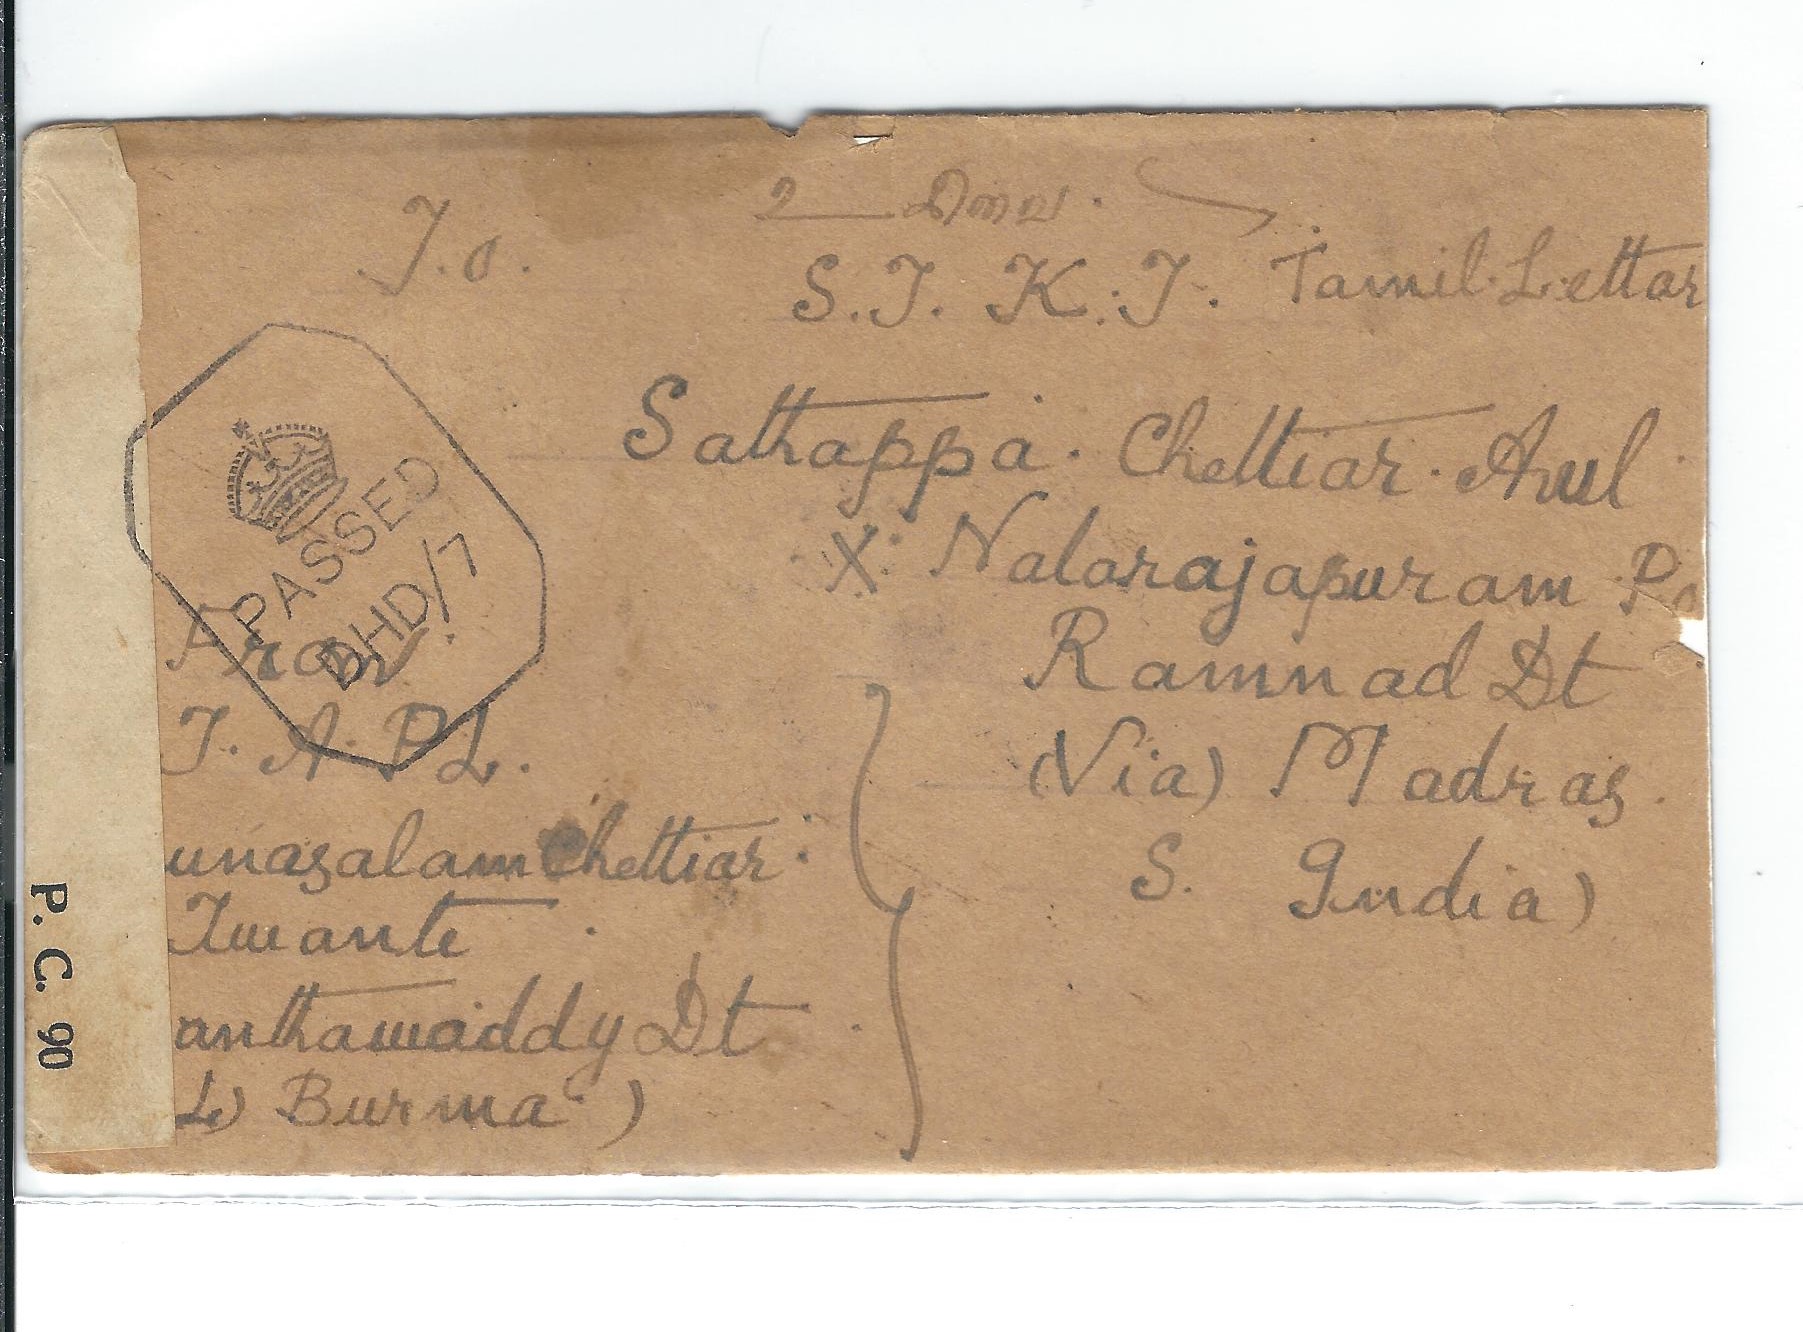 To.
உ
S.T. K.T. Tamil.Lettar
Sathappa. Chettiar. Avul
X Natarajapuram Po
Ramnad Dt
(Via) Madras
S. India)
PASSED
DHD/7
From.
T. A. P L.
unasalam Chettiar
Twante
anthawaddy Dt
L) Burma )
P. C. 90